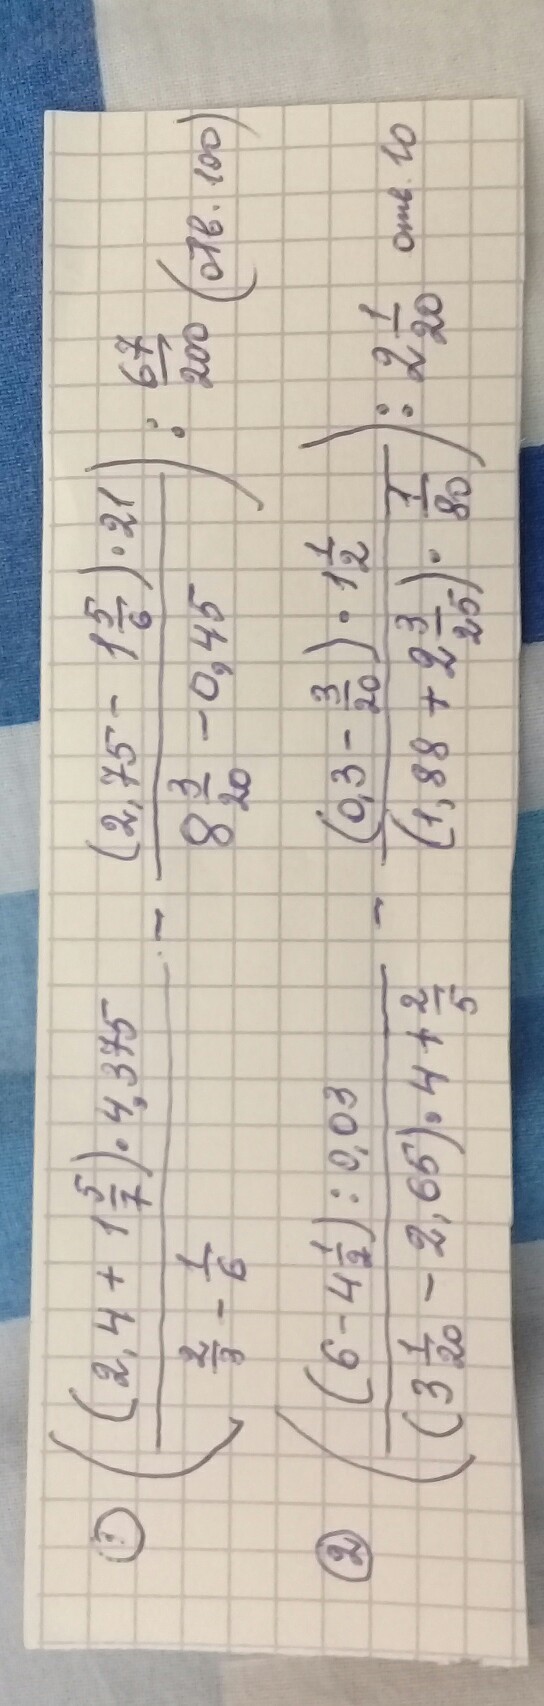 ① ((2,4 + 1 5/7) · 4,375 / (2/3 − 1/6) − (2,75 − 1 5/6) · 21 / (8 3/20 − 0,45)) : 67/200 (отв. 100)
② ((6 − 4 1/2) : 0,03 / ((3 1/20 − 2,65) · 4 + 2/5) − (0,3 − 3/20) · 1 1/2 / ((1,88 + 2 3/25) · 1/80)) : 2 1/20 отв. 10